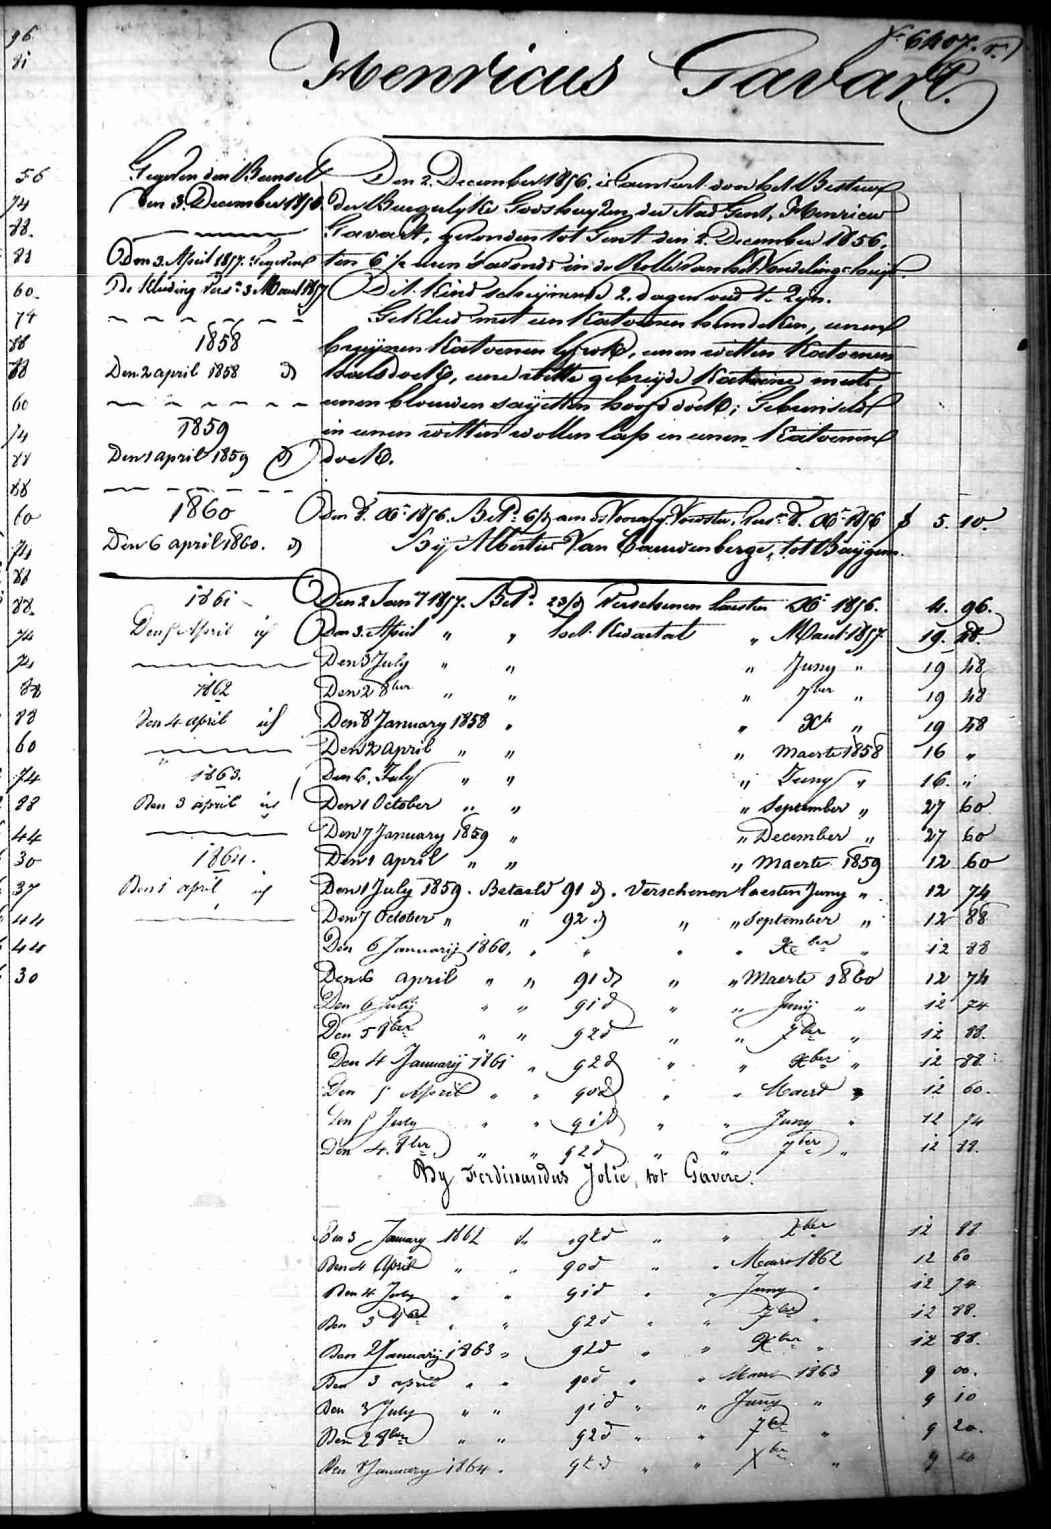 F. 6407. r.
Henricus Gavart.
96
81
56
74
88.
88
60.
74
88
88
60
74
88
88
60
74
88
88.
74
74
88
88
60
74
88
44
30
37
44
44
30
Gegeven den Bunsel
den 3. December 1856
Den 3. April 1857. Gegeven
De Kleding vers. 3 Maart 1857
1858
Den 2 april 1858 d
1859
Den 1 april 1859 d
1860
Den 6 april 1860. d
1861
Den 5 April id
1862
Den 4 april id
1863.
Den 3 april id
1864.
Den 1 april id
Den 2. December 1856. is aenveert door het Bestuur
der Burgelyke Godshuyzen der Stad Gent, Henricus
Gavart, gevonden tot Gent den 2. December 1856,
ten 6 ½ uren 's avonds in de Rolle van het Vondelingshuys.
Dit Kind scheynende 2. dagen oud te Zyn.
Gekleed met een Katoenen hemdeken, eenen
bruynen Katoenen frok, eenen witten Katoenen
halsdoek, eene witte gebreyde Katoene muts,
eenen blauwen sayetten hoofd doek; Gebunseld
in eenen witten wollen lap en eenen Katoenen
doek.
Den 8. Xbr 1856. Bet. 6/d aen Voorster, vers. 8. Xbr 1856 f 5. 10.
By Albertus Van Cauwenberge, tot Baygem.
Den 2 Jany 1857. Bet. 23/d Verschenen laesten Xbr 1856. 4. 96.
Den 3. April " " het Kwartal " Maart 1857. 19. 48.
Den 3 July " " " Juny " 19 48
Den 2 8ber " " " 7ber " 19 48
Den 8 January 1858 " " Xbr " 19 48
Den 2 april " " " Maerte 1858 16 "
Den 6. July " " " Juny " 16. "
Den 1 October " " " September " 27 60
Den 7 January 1859 " " December " 27 60
Den 1 april " " " Maerte 1859 12 60
Den 1 July 1859. Betaeld 91 d. Verschenen laesten Juny " 12 74
Den 7 October " " 92 d " " September " 12 88
Den 6 January 1860, " " " " Xber " 12 88
Den 6 april " " 91 d " " Maerte 1860 12 74
Den 6 July " " 91 d " " Juny " 12 74
Den 5 8ber " " 92 d " " 7ber " 12 88.
Den 4 January 1861 " 92 d " " Xber " 12 88.
Den 5 April " " 90 d " " Maert " 12 60.
Den 5 July " " 91 d " " Juny " 12 74
Den 4. 8ber " " 92 d " " 7ber " 12 88.
By Ferdinandus Jolie, tot Gavere.
Den 3 January 1862 " 92 d " " Xber 12 88
Den 4 April " " 90 d " " Maert 1862 12 60
Den 4 July " " 91 d " " Juny " 12 74
Den 3 8ber " " 92 d " " 7ber " 12 88.
Den 2 January 1863 " 92 d " " Xber " 12 88.
Den 3 april " " 90 d " " Maert 1863 9 00.
Den 3 July " " 91 d " " Juny " 9 10
Den 2 8ber " " 92 d " " 7br " 9 20.
Den 8 January 1864. 92 d " " Xbr " 9 20